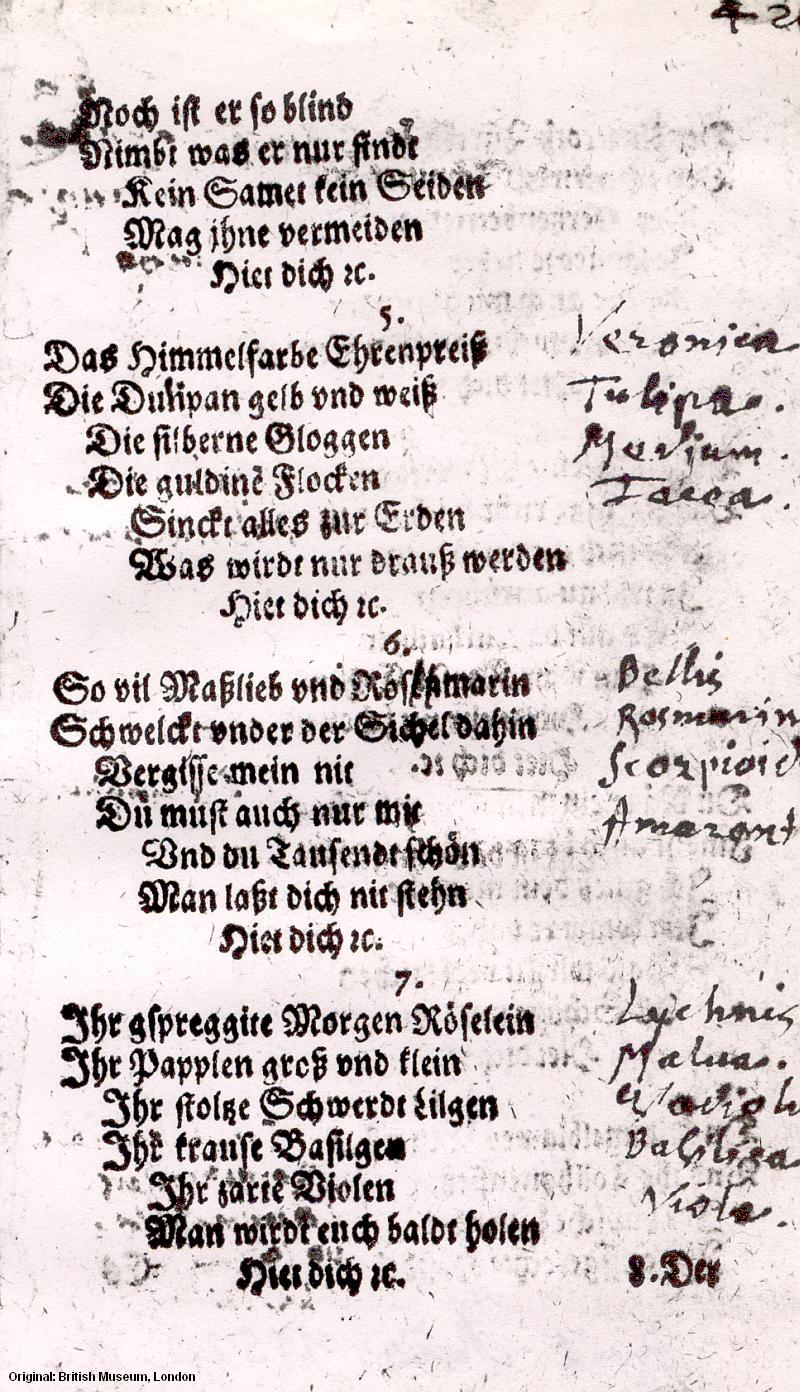 Noch ist er so blind
Nimbt was er nur findt
Kein Samet kein Seiden
Mag jhne vermeiden
Hiet dich ꝛc.
5.
Das Himmelfarbe Ehrenpreiß Veronica
Die Dulipan gelb vnd weiß Tulipa.
Die silberne Gloggen Medium.
Die guldine Flocken
Sinckt alles zur Erden
Was wirdt nur drauß werden
Hiet dich ꝛc.
6.
So vil Maßlieb vnd Rosenmarin Bellis
Schwelckt vnder der Sichel dahin Rosmarin
Vergisse mein nit Scorpioid
Du must auch nur mit Amarant
Vnd du Tausendt schön
Man laßt dich nit stehn
Hiet dich ꝛc.
7.
Ihr gspreggite Morgen Röselein Lychnis
Ihr Papplen groß vnd klein Malua.
Ihr stoltze Schwerdt Lilgen Gladiol
Ihr krause Basilgen Basilica
Ihr zarte Violen Viola.
Man wirdt euch baldt holen
Hiet dich ꝛc. 8. Der
Original: British Museum, London